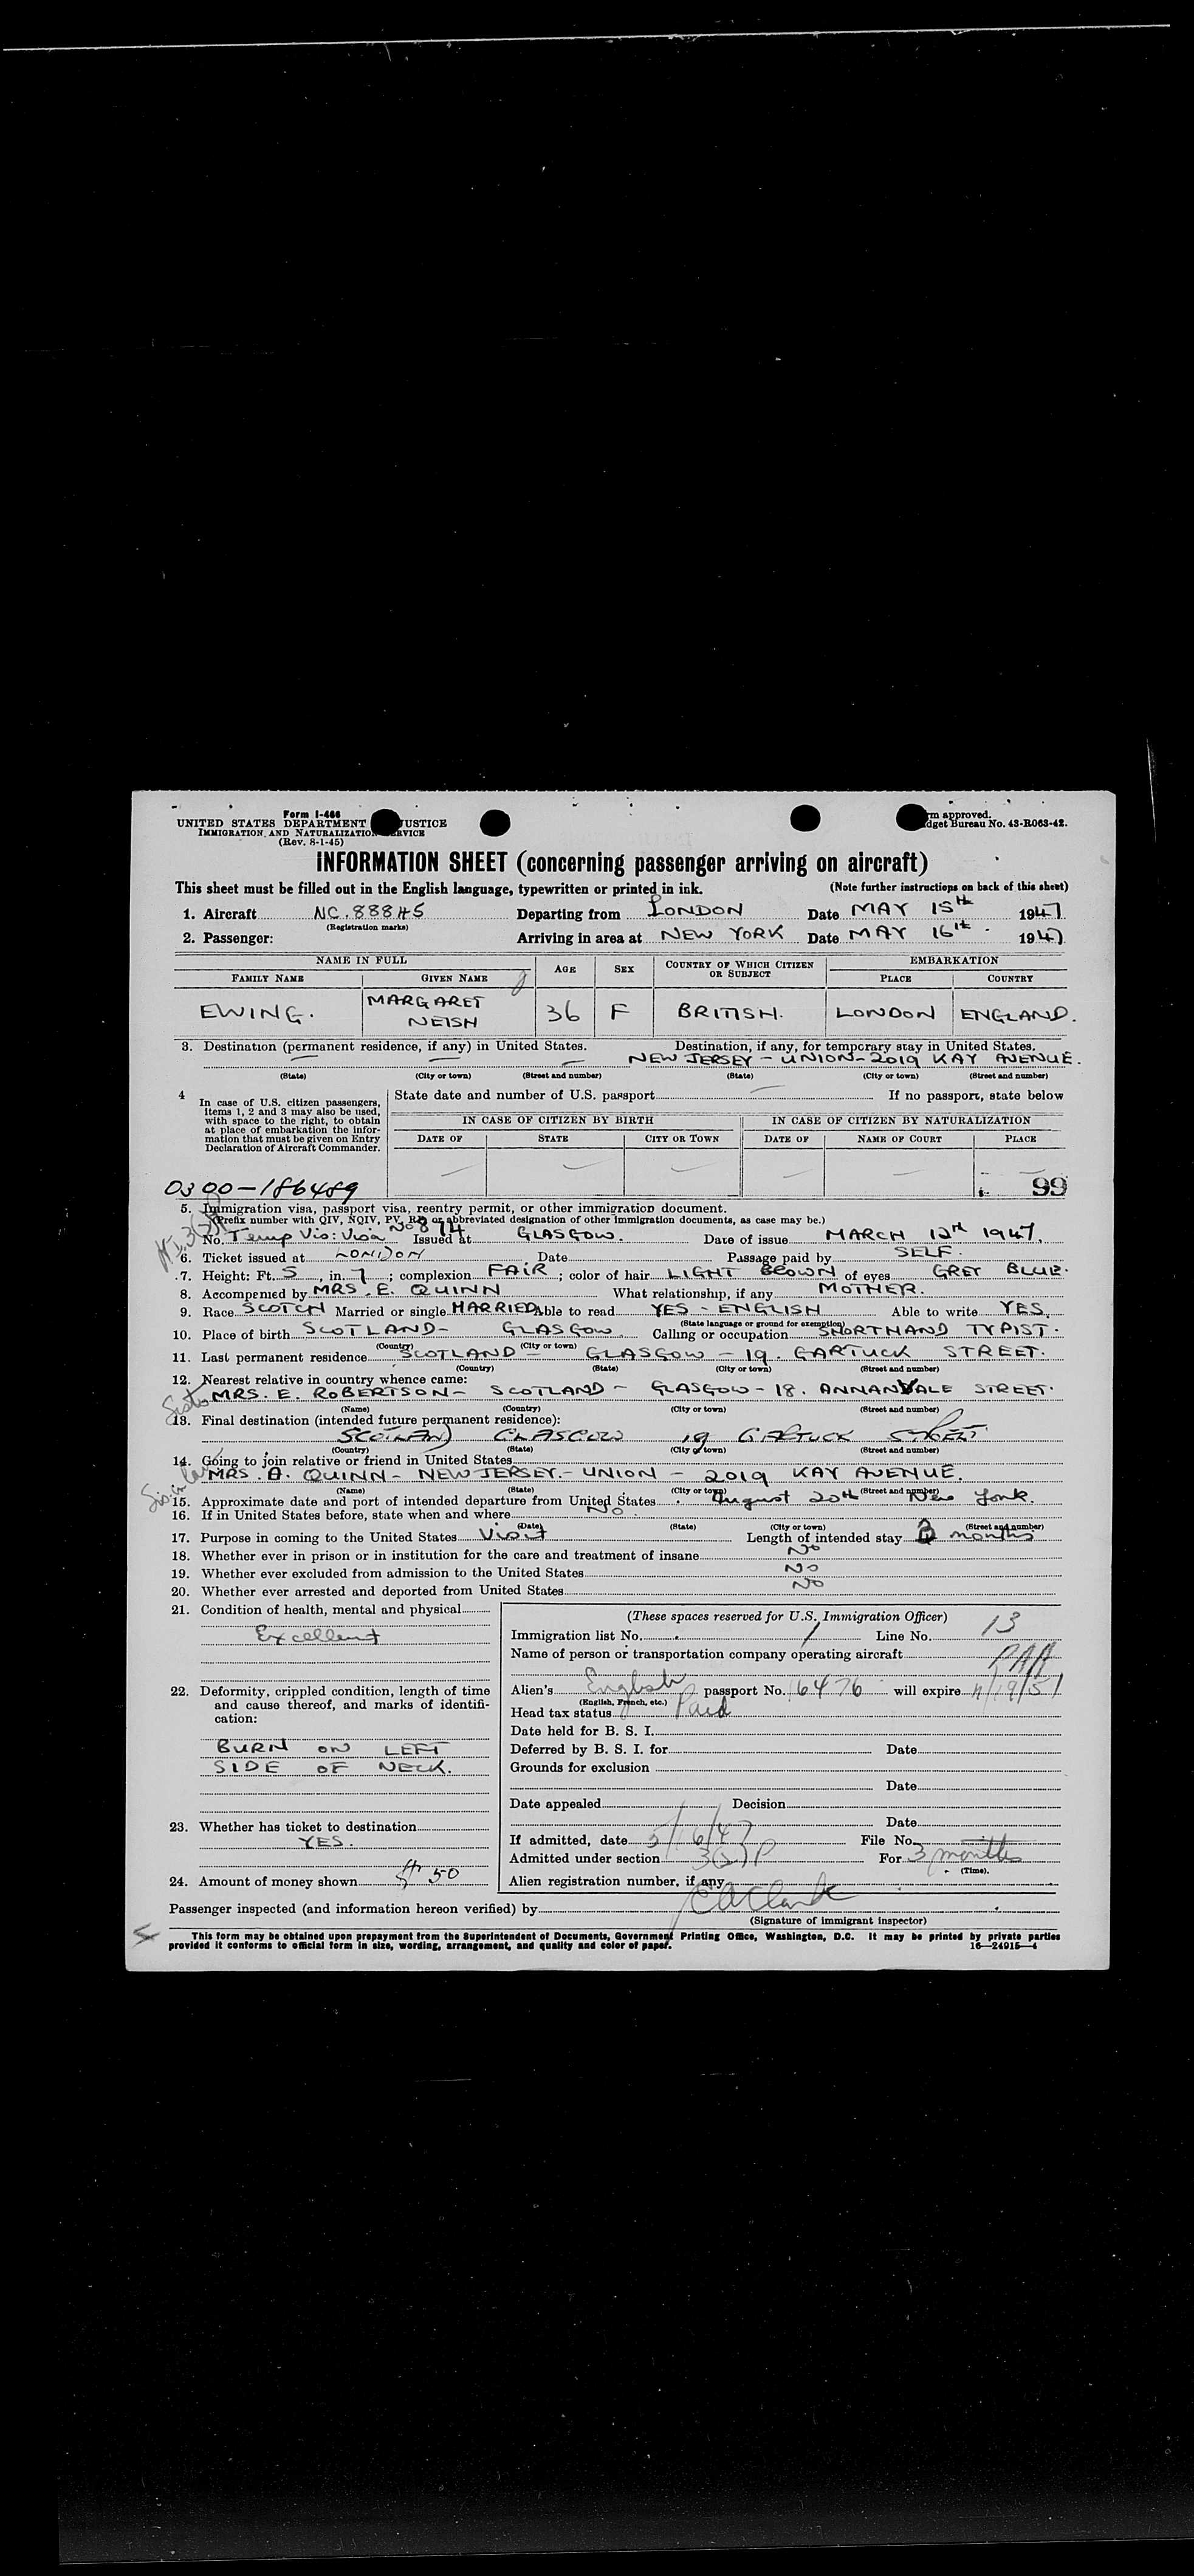 Form I-466
UNITED STATES DEPARTMENT JUSTICE
IMMIGRATION AND NATURALIZATION SERVICE
(Rev. 8-1-45)
rm approved.
dget Bureau No. 43-R063-42.
INFORMATION SHEET (concerning passenger arriving on aircraft)
This sheet must be filled out in the English language, typewritten or printed in ink. (Note further instructions on back of this sheet)
1. Aircraft NC.88845 Departing from LONDON Date MAY 15th 1947
(Registration marks)
2. Passenger: Arriving in area at NEW YORK Date MAY 16th 1947
NAME IN FULL AGE SEX COUNTRY OF WHICH CITIZEN OR SUBJECT EMBARKATION
FAMILY NAME GIVEN NAME PLACE COUNTRY
EWING. MARGARET NEISH 36 F BRITISH. LONDON ENGLAND.
3. Destination (permanent residence, if any) in United States. Destination, if any, for temporary stay in United States.
NEW JERSEY - UNION - 2019 KAY AVENUE.
(State) (City or town) (Street and number) (State) (City or town) (Street and number)
4 In case of U.S. citizen passengers, items 1, 2 and 3 may also be used, with space to the right, to obtain at place of embarkation the information that must be given on Entry Declaration of Aircraft Commander.
State date and number of U.S. passport If no passport, state below
IN CASE OF CITIZEN BY BIRTH IN CASE OF CITIZEN BY NATURALIZATION
DATE OF STATE CITY OR TOWN DATE OF NAME OF COURT PLACE
0300-186489 99
5. Immigration visa, passport visa, reentry permit, or other immigration document.
(Prefix number with QIV, NQIV, PV, RP or abbreviated designation of other immigration documents, as case may be.)
No. Temp Vis: Visa No 814 Issued at GLASGOW. Date of issue MARCH 12th 1947.
6. Ticket issued at LONDON Date Passage paid by SELF.
7. Height: Ft. 5, in. 7; complexion FAIR; color of hair LIGHT BROWN of eyes GREY BLUE.
8. Accompanied by MRS. E. QUINN What relationship, if any MOTHER.
9. Race SCOTCH Married or single MARRIED Able to read YES - ENGLISH Able to write YES.
(State language or ground for exemption)
10. Place of birth SCOTLAND - GLASGOW Calling or occupation SHORTHAND TYPIST.
(Country) (City or town)
11. Last permanent residence SCOTLAND - GLASGOW - 19. GARTUCK STREET.
(Country) (State) (City or town) (Street and number)
12. Nearest relative in country whence came:
Sister MRS. E. ROBERTSON - SCOTLAND - GLASGOW - 18. ANNANDALE STREET.
(Name) (Country) (City or town) (Street and number)
13. Final destination (intended future permanent residence):
SCOTLAND GLASGOW 19 GARTUCK STREET.
(Country) (State) (City or town) (Street and number)
14. Going to join relative or friend in United States
Sis in law MRS. A. QUINN - NEW JERSEY - UNION - 2019 KAY AVENUE.
(Name) (State) (City or town) (Street and number)
15. Approximate date and port of intended departure from United States August 20th New York.
16. If in United States before, state when and where No.
(Date) (State) (City or town) (Street and number)
17. Purpose in coming to the United States Visit Length of intended stay 3 months
18. Whether ever in prison or in institution for the care and treatment of insane No
19. Whether ever excluded from admission to the United States No
20. Whether ever arrested and deported from United States No
21. Condition of health, mental and physical
Excellent
22. Deformity, crippled condition, length of time and cause thereof, and marks of identification:
BURN ON LEFT
SIDE OF NECK.
23. Whether has ticket to destination
YES.
24. Amount of money shown $50
(These spaces reserved for U.S. Immigration Officer)
Immigration list No. 1 Line No. 13
Name of person or transportation company operating aircraft PAA
Alien's English passport No. 16476 will expire 11/19/51
(English, French, etc.)
Head tax status Paid
Date held for B. S. I.
Deferred by B. S. I. for Date
Grounds for exclusion
Date
Date appealed Decision
Date
If admitted, date 5/16/47 File No.
Admitted under section 3(2)P For 3 months
(Time).
Alien registration number, if any
Passenger inspected (and information hereon verified) by E A Clark
(Signature of immigrant inspector)
This form may be obtained upon prepayment from the Superintendent of Documents, Government Printing Office, Washington, D.C. It may be printed by private parties
provided it conforms to official form in size, wording, arrangement, and quality and color of paper. 16—24915—4